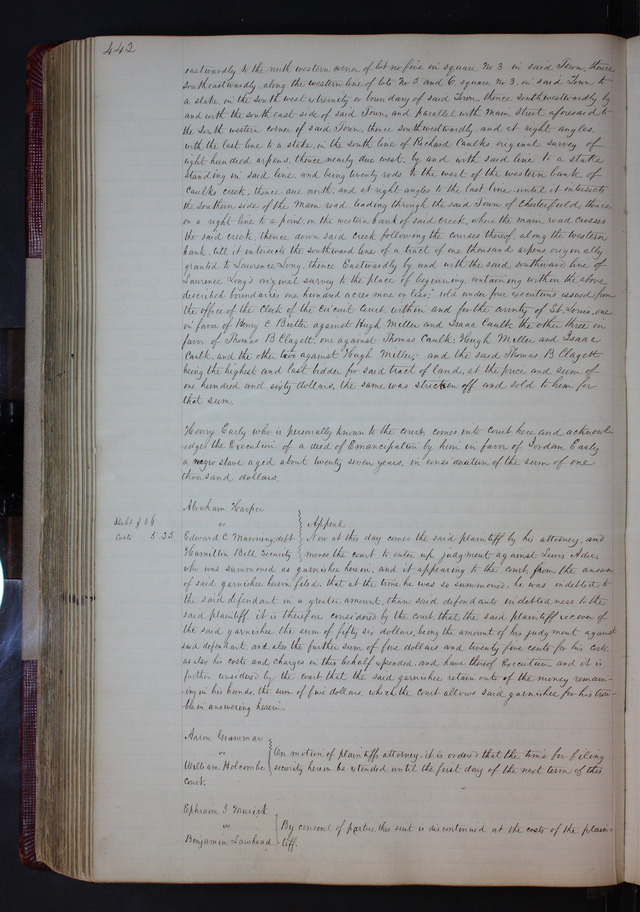 442
eastwardly to the north western corner of lot no five in square No 3 in said Town, thence
southeastwardly, along the western line of lots No 5 and 6, square no 3, in said Town to
a stake in the south west extremity or boundary of said Town, thence southwestwardly, by
and with the south east side of said Town, and parallel with Main Street aforesaid to
the south western corner of said Town, thence southwestwardly and at right angles
with the last line to a stake in the south line of Richard Caulks original survey of
eight hundred arpens, thence nearly due west, by and with said line to a stake
standing in said line and being twenty rods to the west of the western bank of
Caulks creek, thence due north, and at right angles to the last line, until it intersects
the southern side of the Main road, leading through the said Town of Chesterfield, thence
on a right line to a point on the western bank of said creek, where the main road crosses
the said creek, thence down said creek following the courses thereof, along the western
bank, till it intersects the southward line of a tract of one thousand arpens originally
granted to Lawrence Long, thence Eastwardly by and with the said southward line of
Lawrence Longs original survey to the place of beginning, containing within the above
described boundaries one hundred acres more or less; sold under five executions issued from
the office of the Clerk of the Circuit Court within and for the county of St. Louis, one
in favor of Henry C Butler against Hugh Miller and Isaac Caulk the other three in
favor of Thomas B Clagett, one against Thomas Caulk, Hugh Miller and Isaac
Caulk, and the other two against Hugh Miller; and the said Thomas B Clagett
being the highest and last bidder for said tract of land, at the price and sum of
one hundred and sixty dollars, the same was stricken off and sold to him for
that sum.
Henry Early who is personally known to the court, comes into Court here and acknowl
edges the Execution of a deed of Emancipation by him in favor of Jordan Early
a negro slave aged about twenty seven years, in consideration of the sum of one
thousand dollars.
Abraham Harper
vs
Appeal
Debt $56
Edward C Manning, deft
Now at this day comes the said plaintiff by his attorney, and
Costs 5.25
Hamilton Bell Security
moves the court to enter up judgment against Lewis
who was summoned as garnishee herein, and it appearing to the court, from the answer
of said garnishee herein filed, that at the time he was so summoned, he was indebted to
the said defendant in a greater amount, than said defendants indebtedness to the
said plaintiff, it is therefore considered by the court that the said plaintiff recover of
the said garnishee the sum of fifty six dollars, being the amount of his judgment against
said defendant, and also the further sum of five dollars and twenty five cents for his costs,
as also his costs and charges in this behalf expended, and have thereof Execution, and it is
further considered by the court that the said garnishee retain out of the money remain-
ing in his hands, the sum of five dollars, which the court allows said garnishee for his trou-
ble in answering herein.
Aaron Grammar
vs
On motion of plaintiffs attorney it is ordered that the time for filing
William Holcombe
security herein be extended until the first day of the next term of this
court.
Ephraim J Musick
vs
By consent of parties, this suit is discontinued at the costs of the plain-
Benjamin Lawhead
tiff.